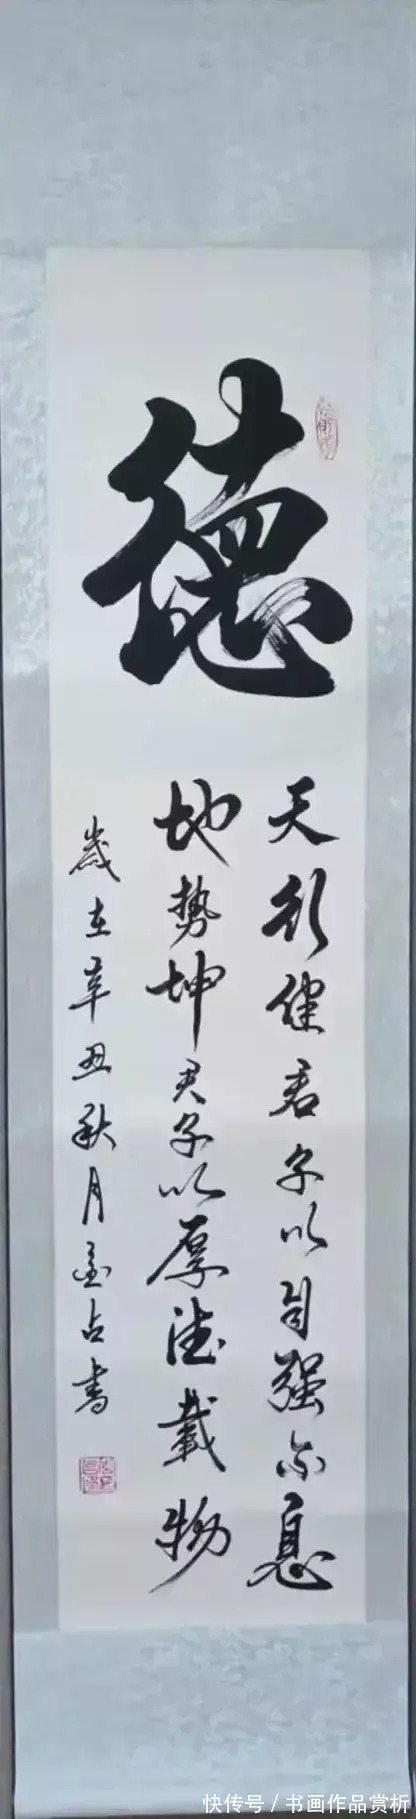 德
天行健君子以自强不息
地势坤君子以厚德载物
岁在辛丑秋月金占书
快传号/书画作品赏析